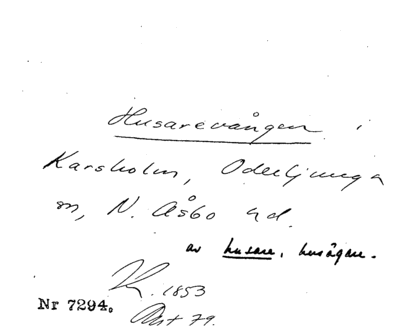 Husarevången i
Karsholm, Oderljunga
sn, N. Åsbo hd.
av husare, husägare.
K. 1853
Nr 7294.
Akt 79.